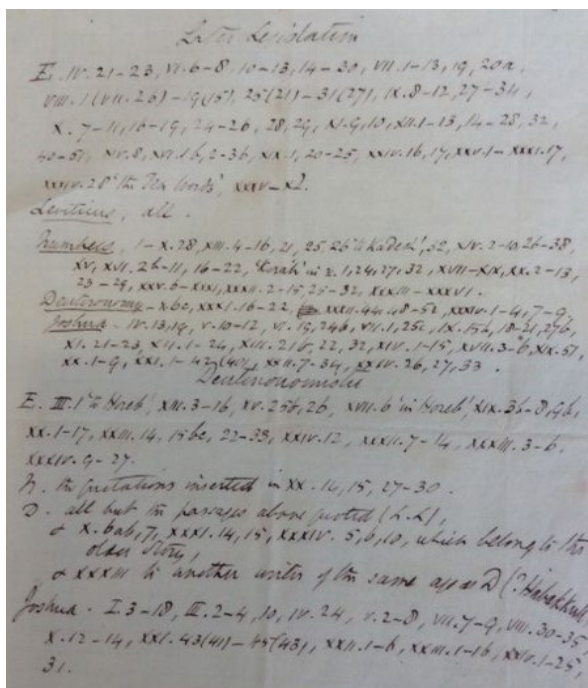 Later Legislation
E. IV. 21-23, VI. 6-8, 10-13, 14-30, VII. 1-13, 19, 20a,
VIII. 1 (VII. 26) -19(15), 25(21)-31(27), IX. 8-12, 27-34,
X. 7-11, 16-19, 24-26, 28, 29, XI. 9, 10, XII. 1-13, 14-28, 32,
40-51, XV. 8, XVI. 1b, 2-36, XIX. 1, 20-25, XXIV. 16, 17, XXV. 1-XXXI. 17,
XXXIV. 28 'the Ten Words', XXXV-XL.
Leviticus, all.
Numbers, 1-X. 28, XIII. 4-16, 21, 25, 26 'to Kadesh', 32, XIV. 2-10, 26-38,
XV, XVI. 2b-11, 16-22, 'Korah' in v. 1, 24, 27, 32, XVII-XIX, XX. 2-13,
23-29, XXV. 6-XXXI, XXXII. 2-15, 25-32, XXXIII-XXXVI.
Deuteronomy - X6c, XXXI. 16-22, XXXII. 44, 48-52, XXXIV. 1-4, 7-9,
Joshua - IV. 13, 19, V. 10-12, VI. 19, 24b, VII. 1, 25c, IX. 15b, 18-21, 27b,
XI. 21-23, XII. 1-24, XIII. 21b, 22, 32, XIV. 1-15, XVII. 3-6, XIX. 51,
XX. 1-9, XXI. 1-42(40), XXII. 7-34, XXIV. 26, 27, 33.
Deuteronomist
E. III. 1 'to Horeb', XIII. 3-16, XV. 25b, 26, XVII. 6 'in Horeb', XIX. 3b-8, 9b,
XX. 1-17, XXIII. 14, 15bc, 22-33, XXIV. 12, XXXII. 7-14, XXXIII. 3-6,
XXXIV. 9-27.
N. the quotations inserted in XX. 14, 15, 27-30.
D. all but the passages above quoted (L.L),
& X. 6ab, 7, XXXI. 14, 15, XXXIV. 5, 6, 10, which belong to the
older Story,
& XXXIII to another writer of the same age as D (? Habakkuk)
Joshua. I. 3-18, III. 2-4, 10, IV. 24, V. 2-8, VII. 7-9, VIII. 30-35,
X. 12-14, XXI. 43(41)-45(43), XXII. 1-6, XXIII. 1-16, XXIV. 1-25,
31.